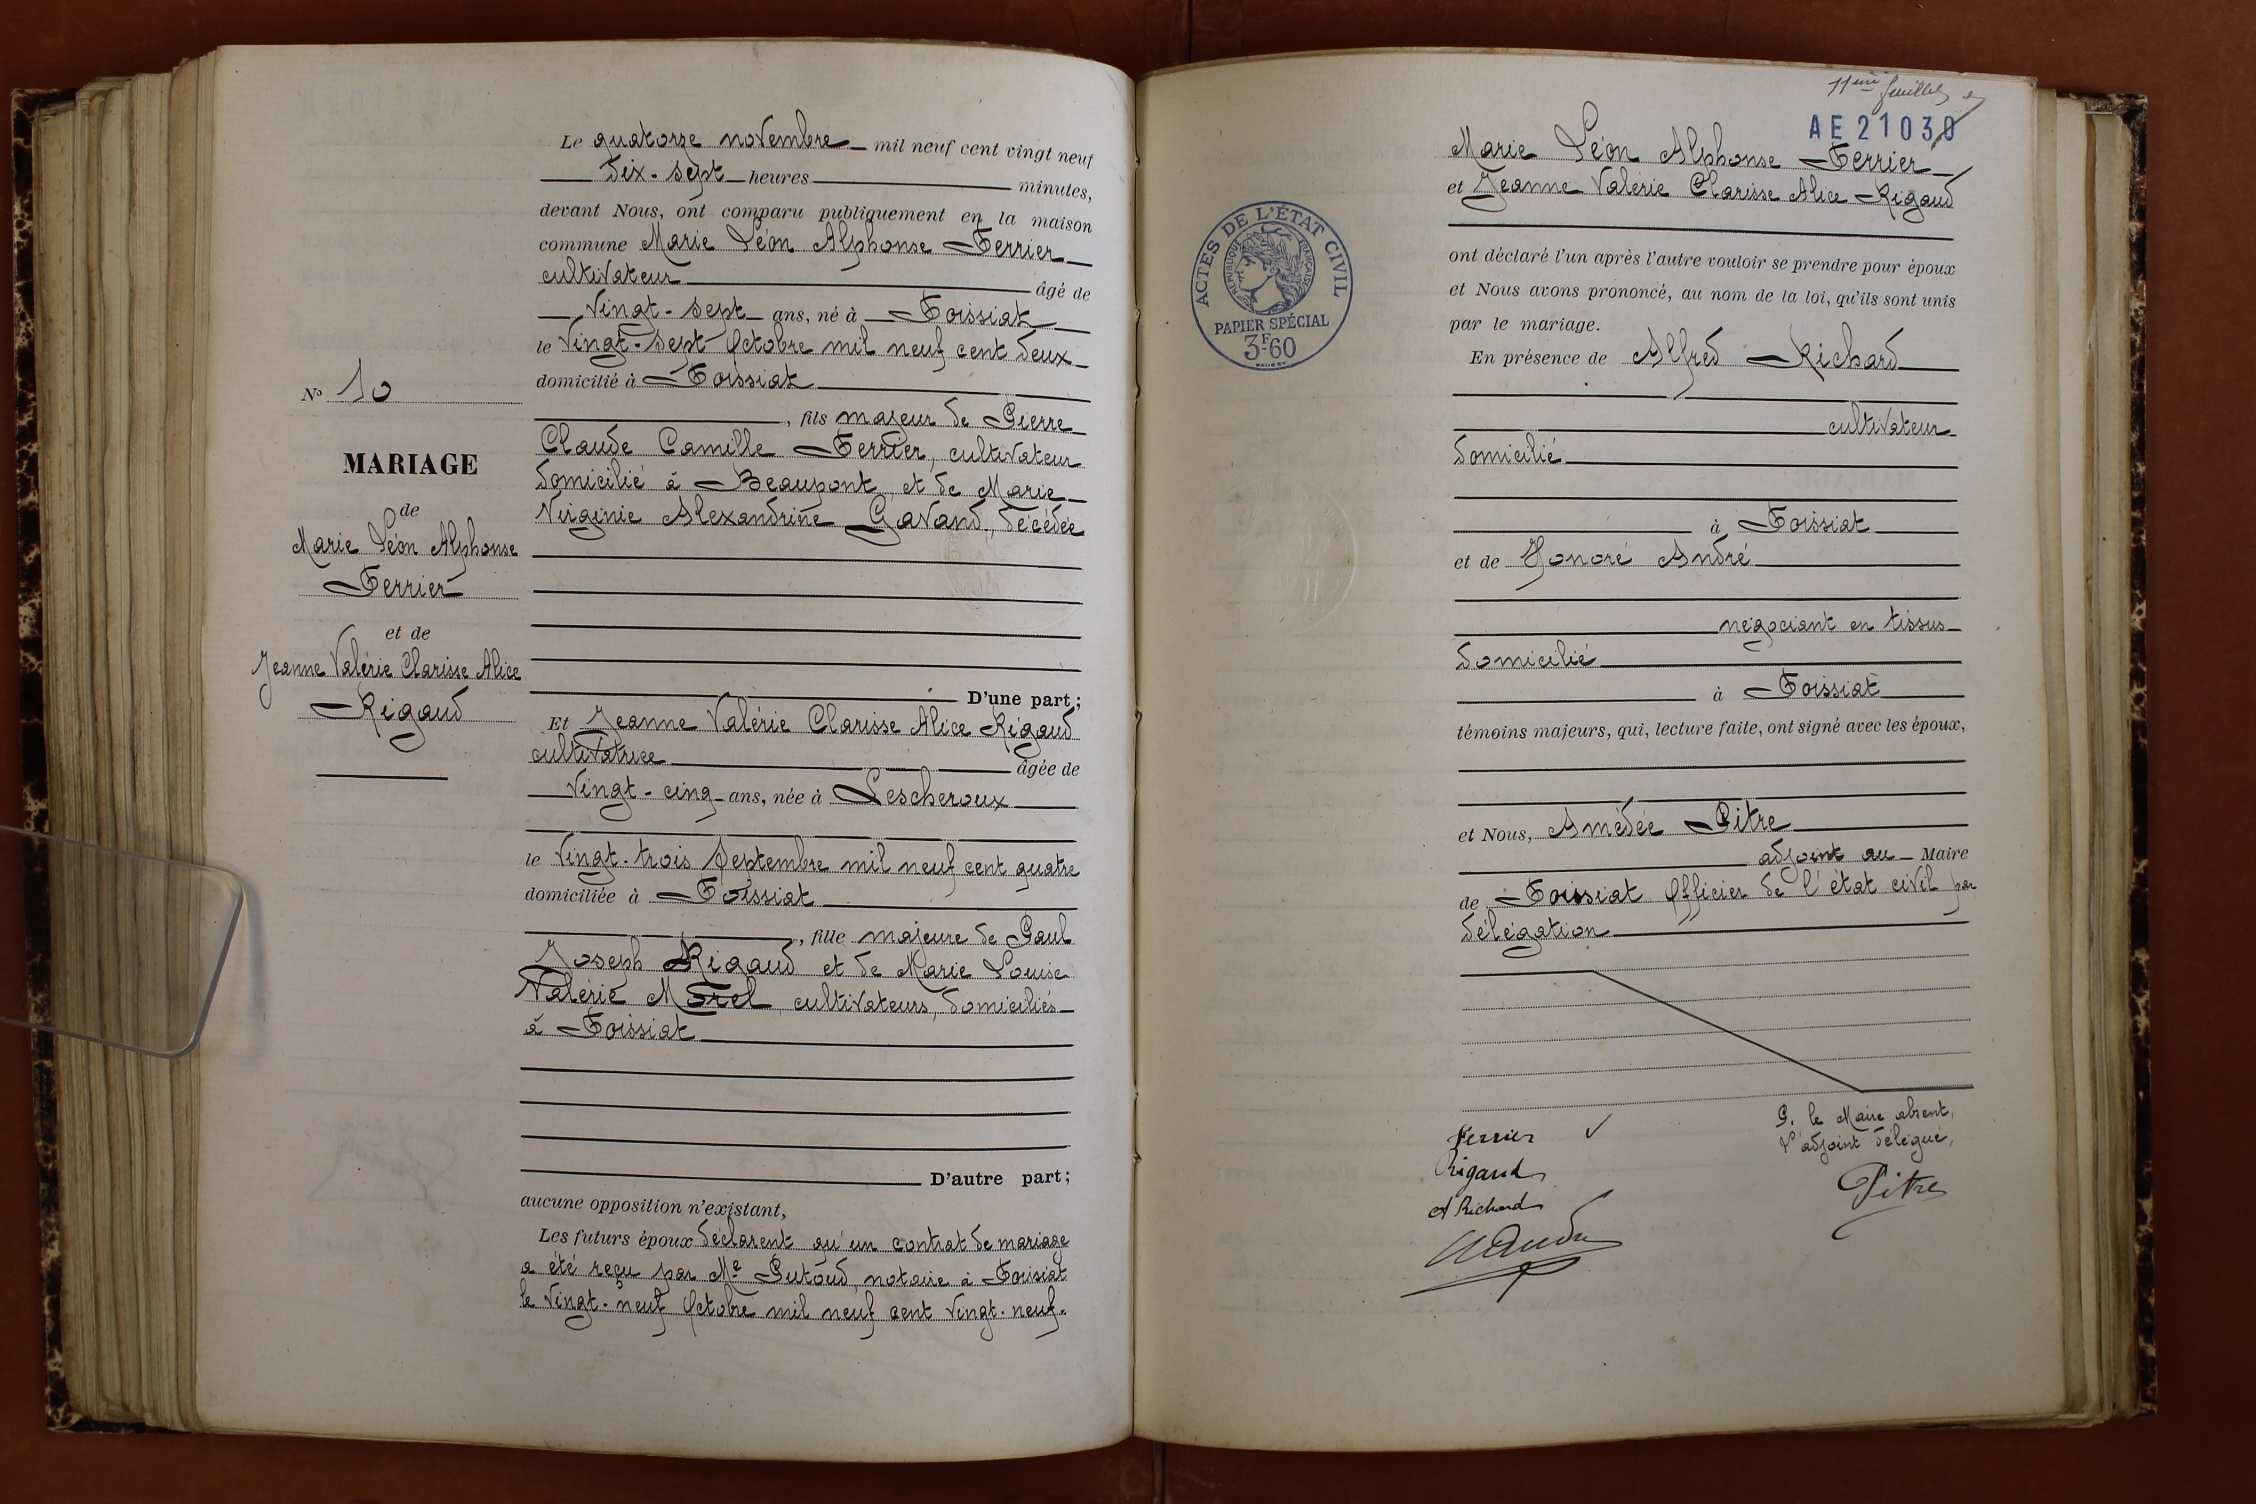 Le quatorze novembre mil neuf cent vingt neuf
dix-sept heures minutes,
devant Nous, ont comparu publiquement en la maison
commune Marie Léon Alphonse Ferrier
cultivateur âgé de
vingt-sept ans, né à Foissiat
le vingt-sept Octobre mil neuf cent deux
domicilié à Foissiat
, fils majeur de Pierre
Claude Camille Ferrier, cultivateur
domicilié à Beaupont, et de Marie
Virginie Alexandrine Gavand, décédée
D'une part;
Et Jeanne Valérie Clarisse Alice Rigaud
cultivatrice âgée de
vingt-cinq ans, née à Lescheroux
le vingt-trois Septembre mil neuf cent quatre
domiciliée à Foissiat
, fille majeure de Paul
Joseph Rigaud et de Marie Louise
Valérie Morel, cultivateurs, domiciliés
à Foissiat
D'autre part;
aucune opposition n'existant,
Les futurs époux déclarent qu'un contrat de mariage
a été reçu par Me Putoud, notaire à Foissiat
le vingt-neuf Octobre mil neuf cent vingt-neuf.
No 10
MARIAGE
de
Marie Léon Alphonse
Ferrier
et de
Jeanne Valérie Clarisse Alice
Rigaud
11eme feuillet
AE21030
Marie Léon Alphonse Ferrier
et Jeanne Valérie Clarisse Alice Rigaud
ont déclaré l'un après l'autre vouloir se prendre pour époux
et Nous avons prononcé, au nom de la loi, qu'ils sont unis
par le mariage.
En présence de Alfred Richard
cultivateur
domicilié
à Foissiat
et de Honoré André
négociant en tissus
domicilié
à Foissiat
témoins majeurs, qui, lecture faite, ont signé avec les époux,
et Nous, Amédée Pitre
adjoint au Maire
de Foissiat Officier de l'état civil par
délégation
ACTES DE L'ÉTAT CIVIL
RÉPUBLIQUE FRANÇAISE
PAPIER SPÉCIAL
3F60
Ferrier
Rigaud
A Richard
H André
P. le Maire absent,
L'adjoint délégué,
Pitre